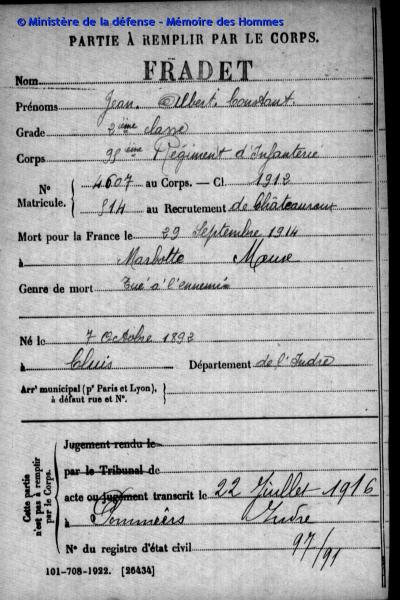 © Ministère de la défense - Mémoire des Hommes
PARTIE À REMPLIR PAR LE CORPS.
Nom FRADET
Prénoms Jean Albert Constant
Grade 2ième classe
Corps 95ième Régiment d'Infanterie
N° Matricule. 4607 au Corps. — Cl. 1912
814 au Recrutement de Châteauroux
Mort pour la France le 29 Septembre 1914
à Marbotte Meuse
Genre de mort Tué à l'ennemi
Né le 7 Octobre 1892
à Cluis Département de l'Indre
Arrt municipal (pr Paris et Lyon),
à défaut rue et N°.
Cette partie n'est pas à remplir par le Corps.
Jugement rendu le
par le Tribunal de
acte ou jugement transcrit le 22 Juillet 1916
à Pommiers Indre
N° du registre d'état civil 97/91
101-708-1922. [26434]